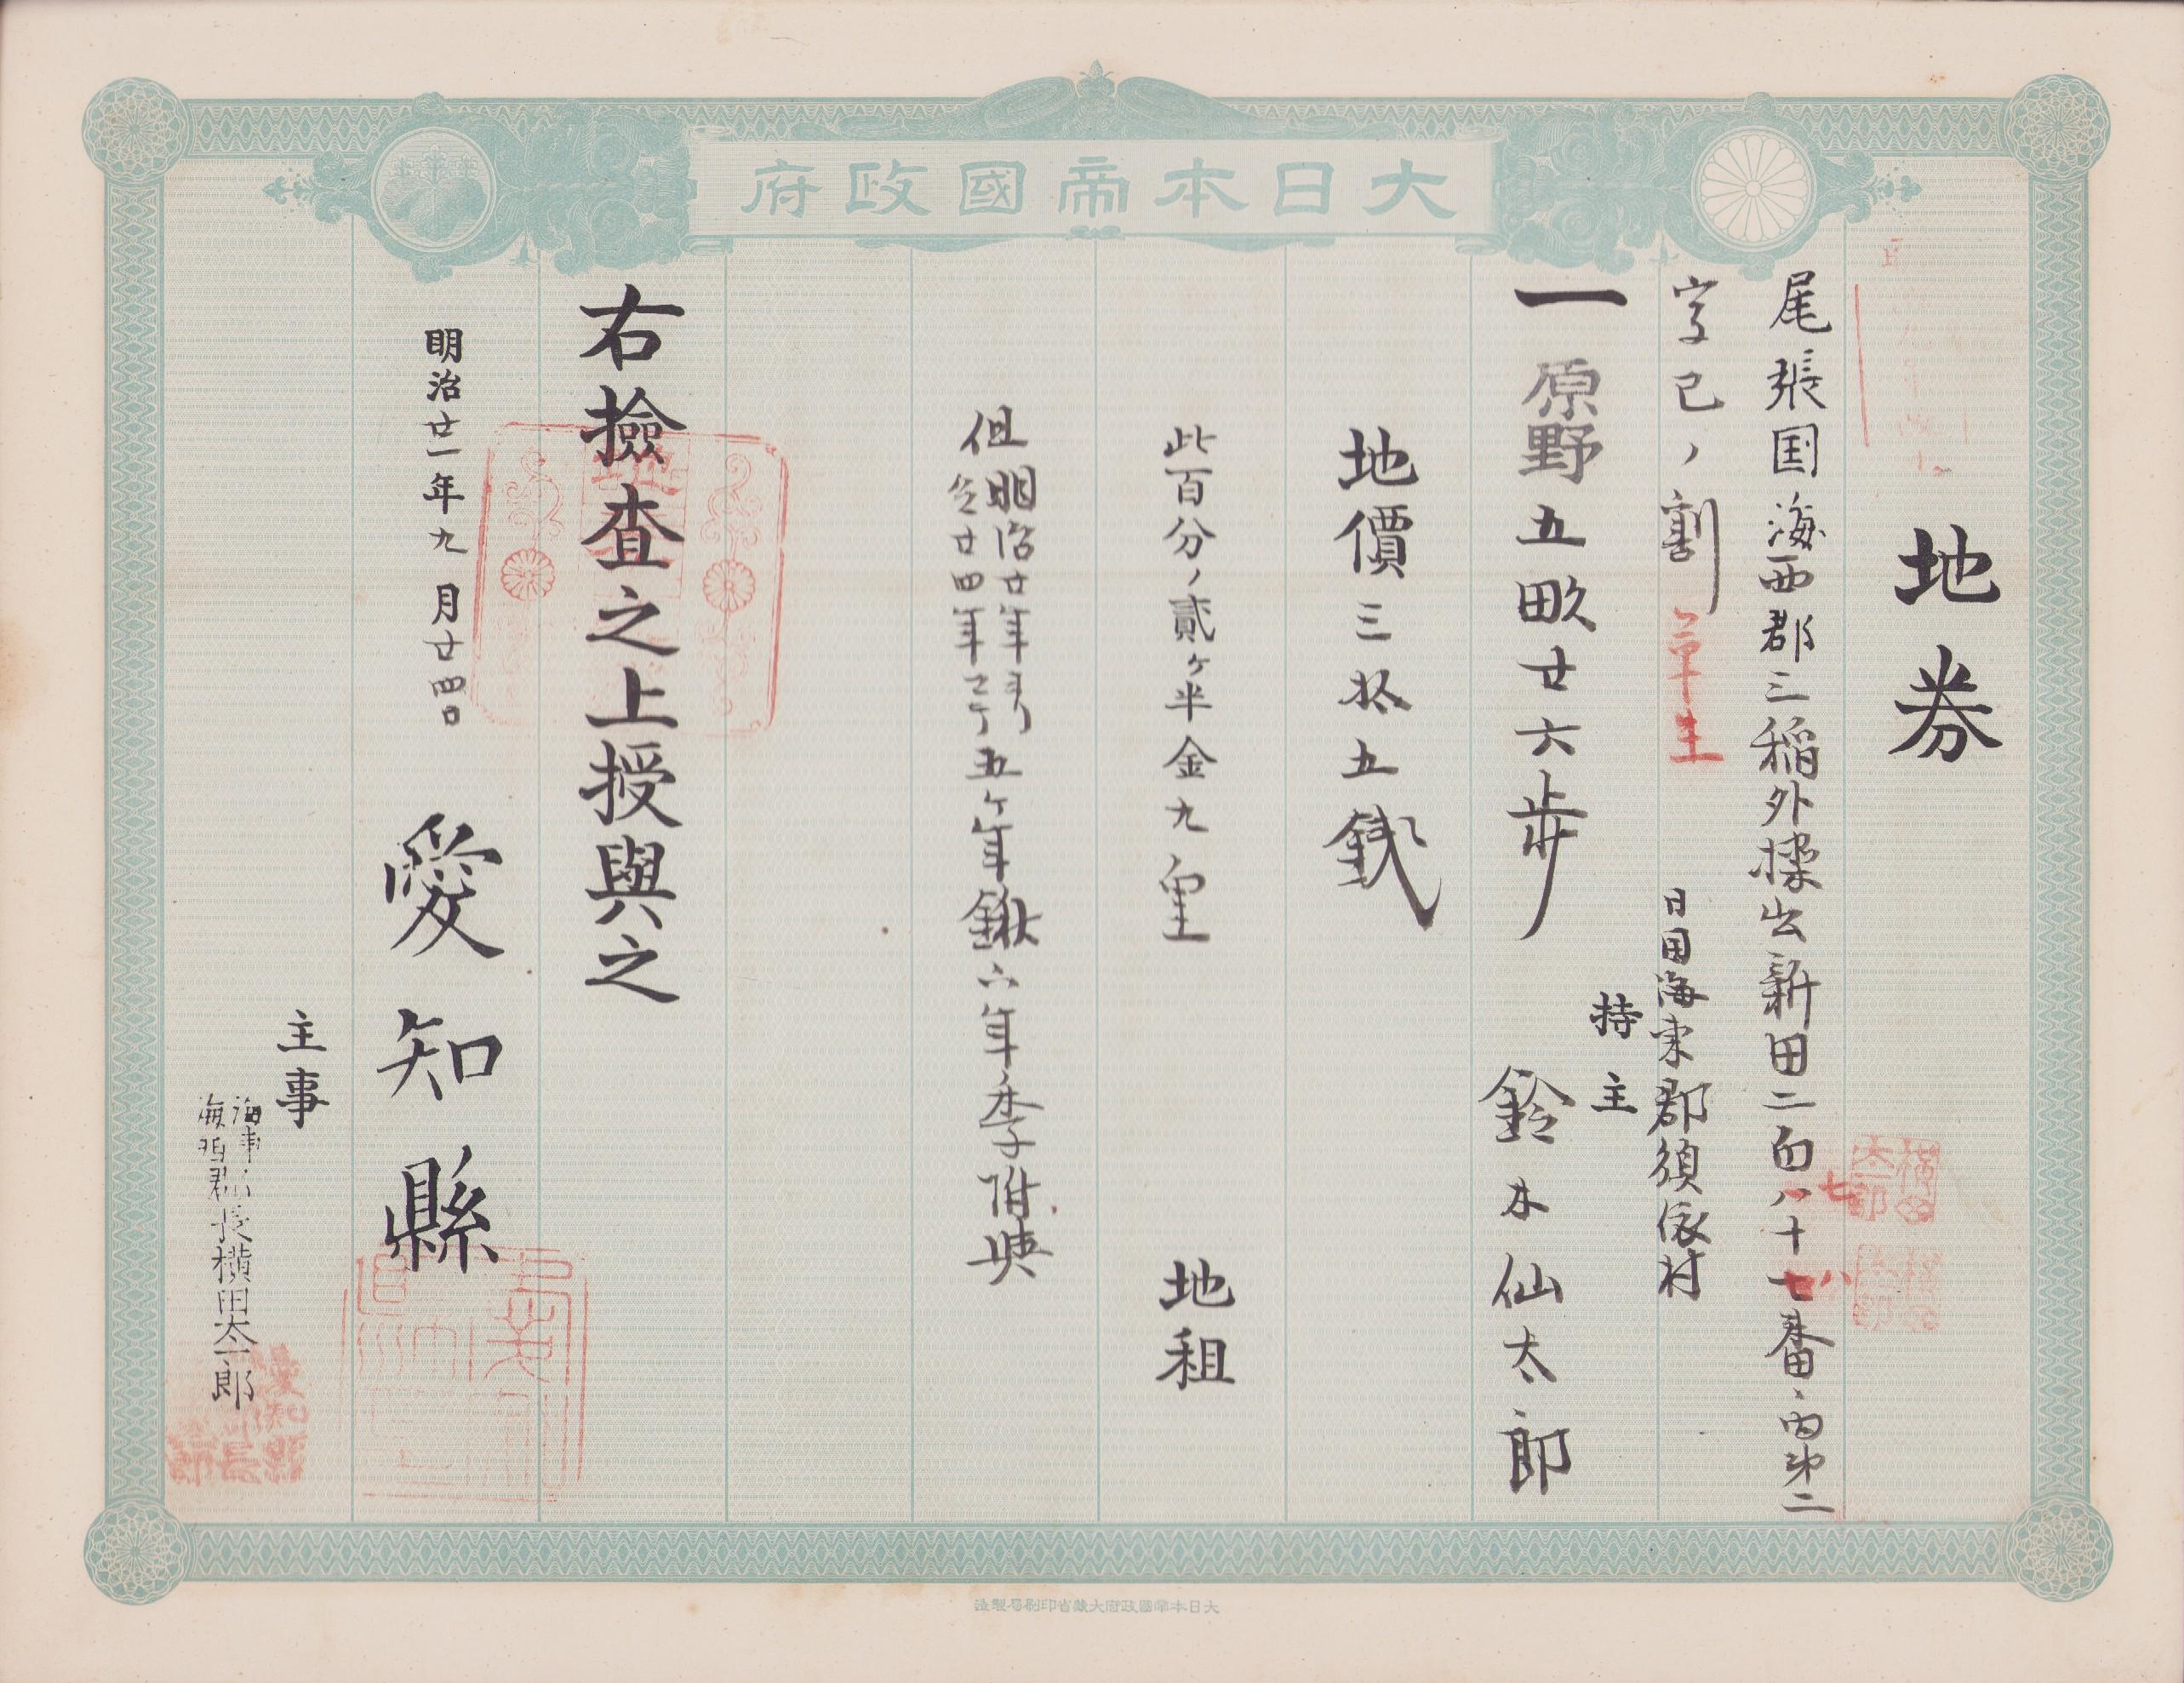 大日本帝國政府
地券
尾張国海西郡三稲外操出新田二百八十七番ノ内第二
七
八
字己ノ割
草生
一原野五畝廿六歩
同国海東郡須依村
持主
鈴木仙太郎
地價三拾五銭
此百分ノ貳ヶ半金九厘
地租
但明治廿年ヨリ
仝廿四年マテ
五ヶ年鍬六年季附與
右撿査之上授與之
明治廿一年九月廿四日
愛知縣
主事
海東
海西
郡長横田太一郎
大日本帝國政府大藏省印刷局製造